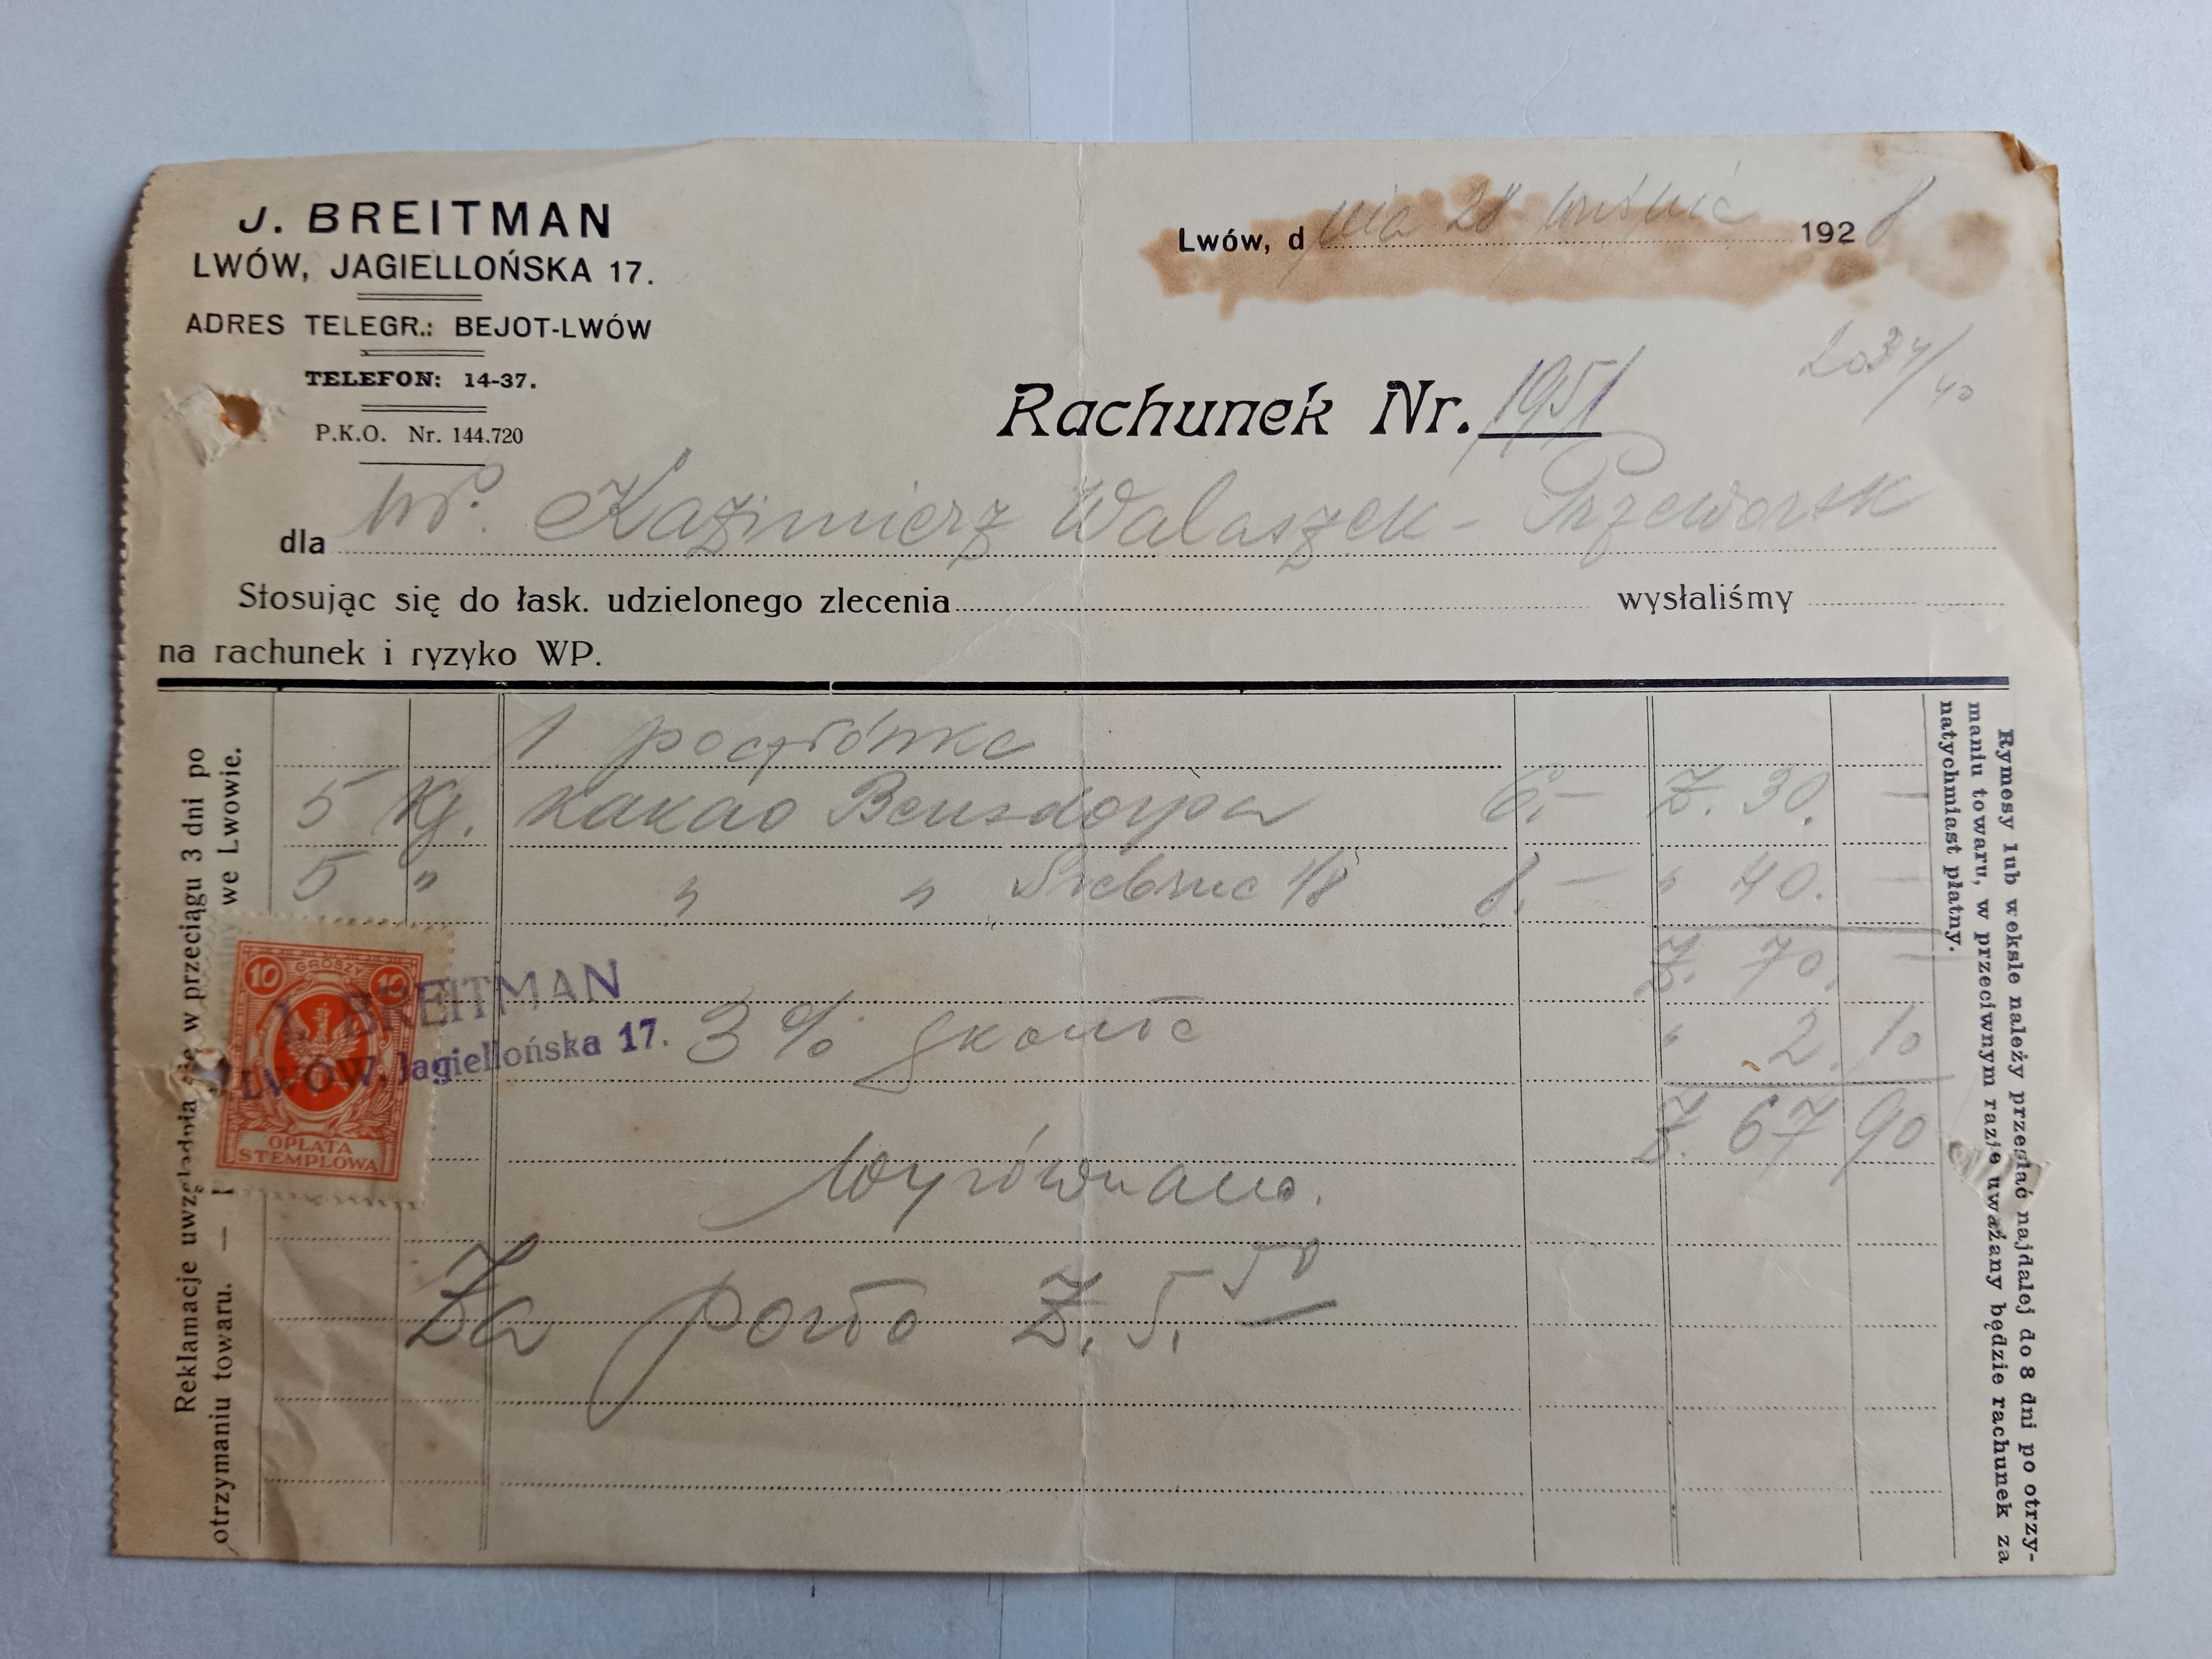 J. BREITMAN
LWÓW, JAGIELLOŃSKA 17.
ADRES TELEGR.: BEJOT-LWÓW
TELEFON: 14-37.
P.K.O. Nr. 144.720
Lwów, dnia 28 192 8
2034/40
Rachunek Nr. 1951
dla WP. Kazimierz Walaszek - Przeworsk
Stosując się do łask. udzielonego zlecenia wysłaliśmy
na rachunek i ryzyko WP.
1 pocztówka
5 Kg. kakao Bensdorpa 6.- Z. 30. -
5 " " " Srebrne 1/8 8. - " 40. -
Z. 70. -
3% skonto " 2. 10
Z. 67 90
Wyrównano.
Za porto Z. 5. 50
10 GROSZY 10
OPŁATA
STEMPLOWA
J. BREITMAN
LWÓW, Jagiellońska 17.
Reklamacje uwzględnia się w przeciągu 3 dni po
otrzymaniu towaru. — we Lwowie.
Rymesy lub weksle należy przesłać najdalej do 8 dni po otrzy-
maniu towaru, w przeciwnym razie uważany będzie rachunek za
natychmiast płatny.